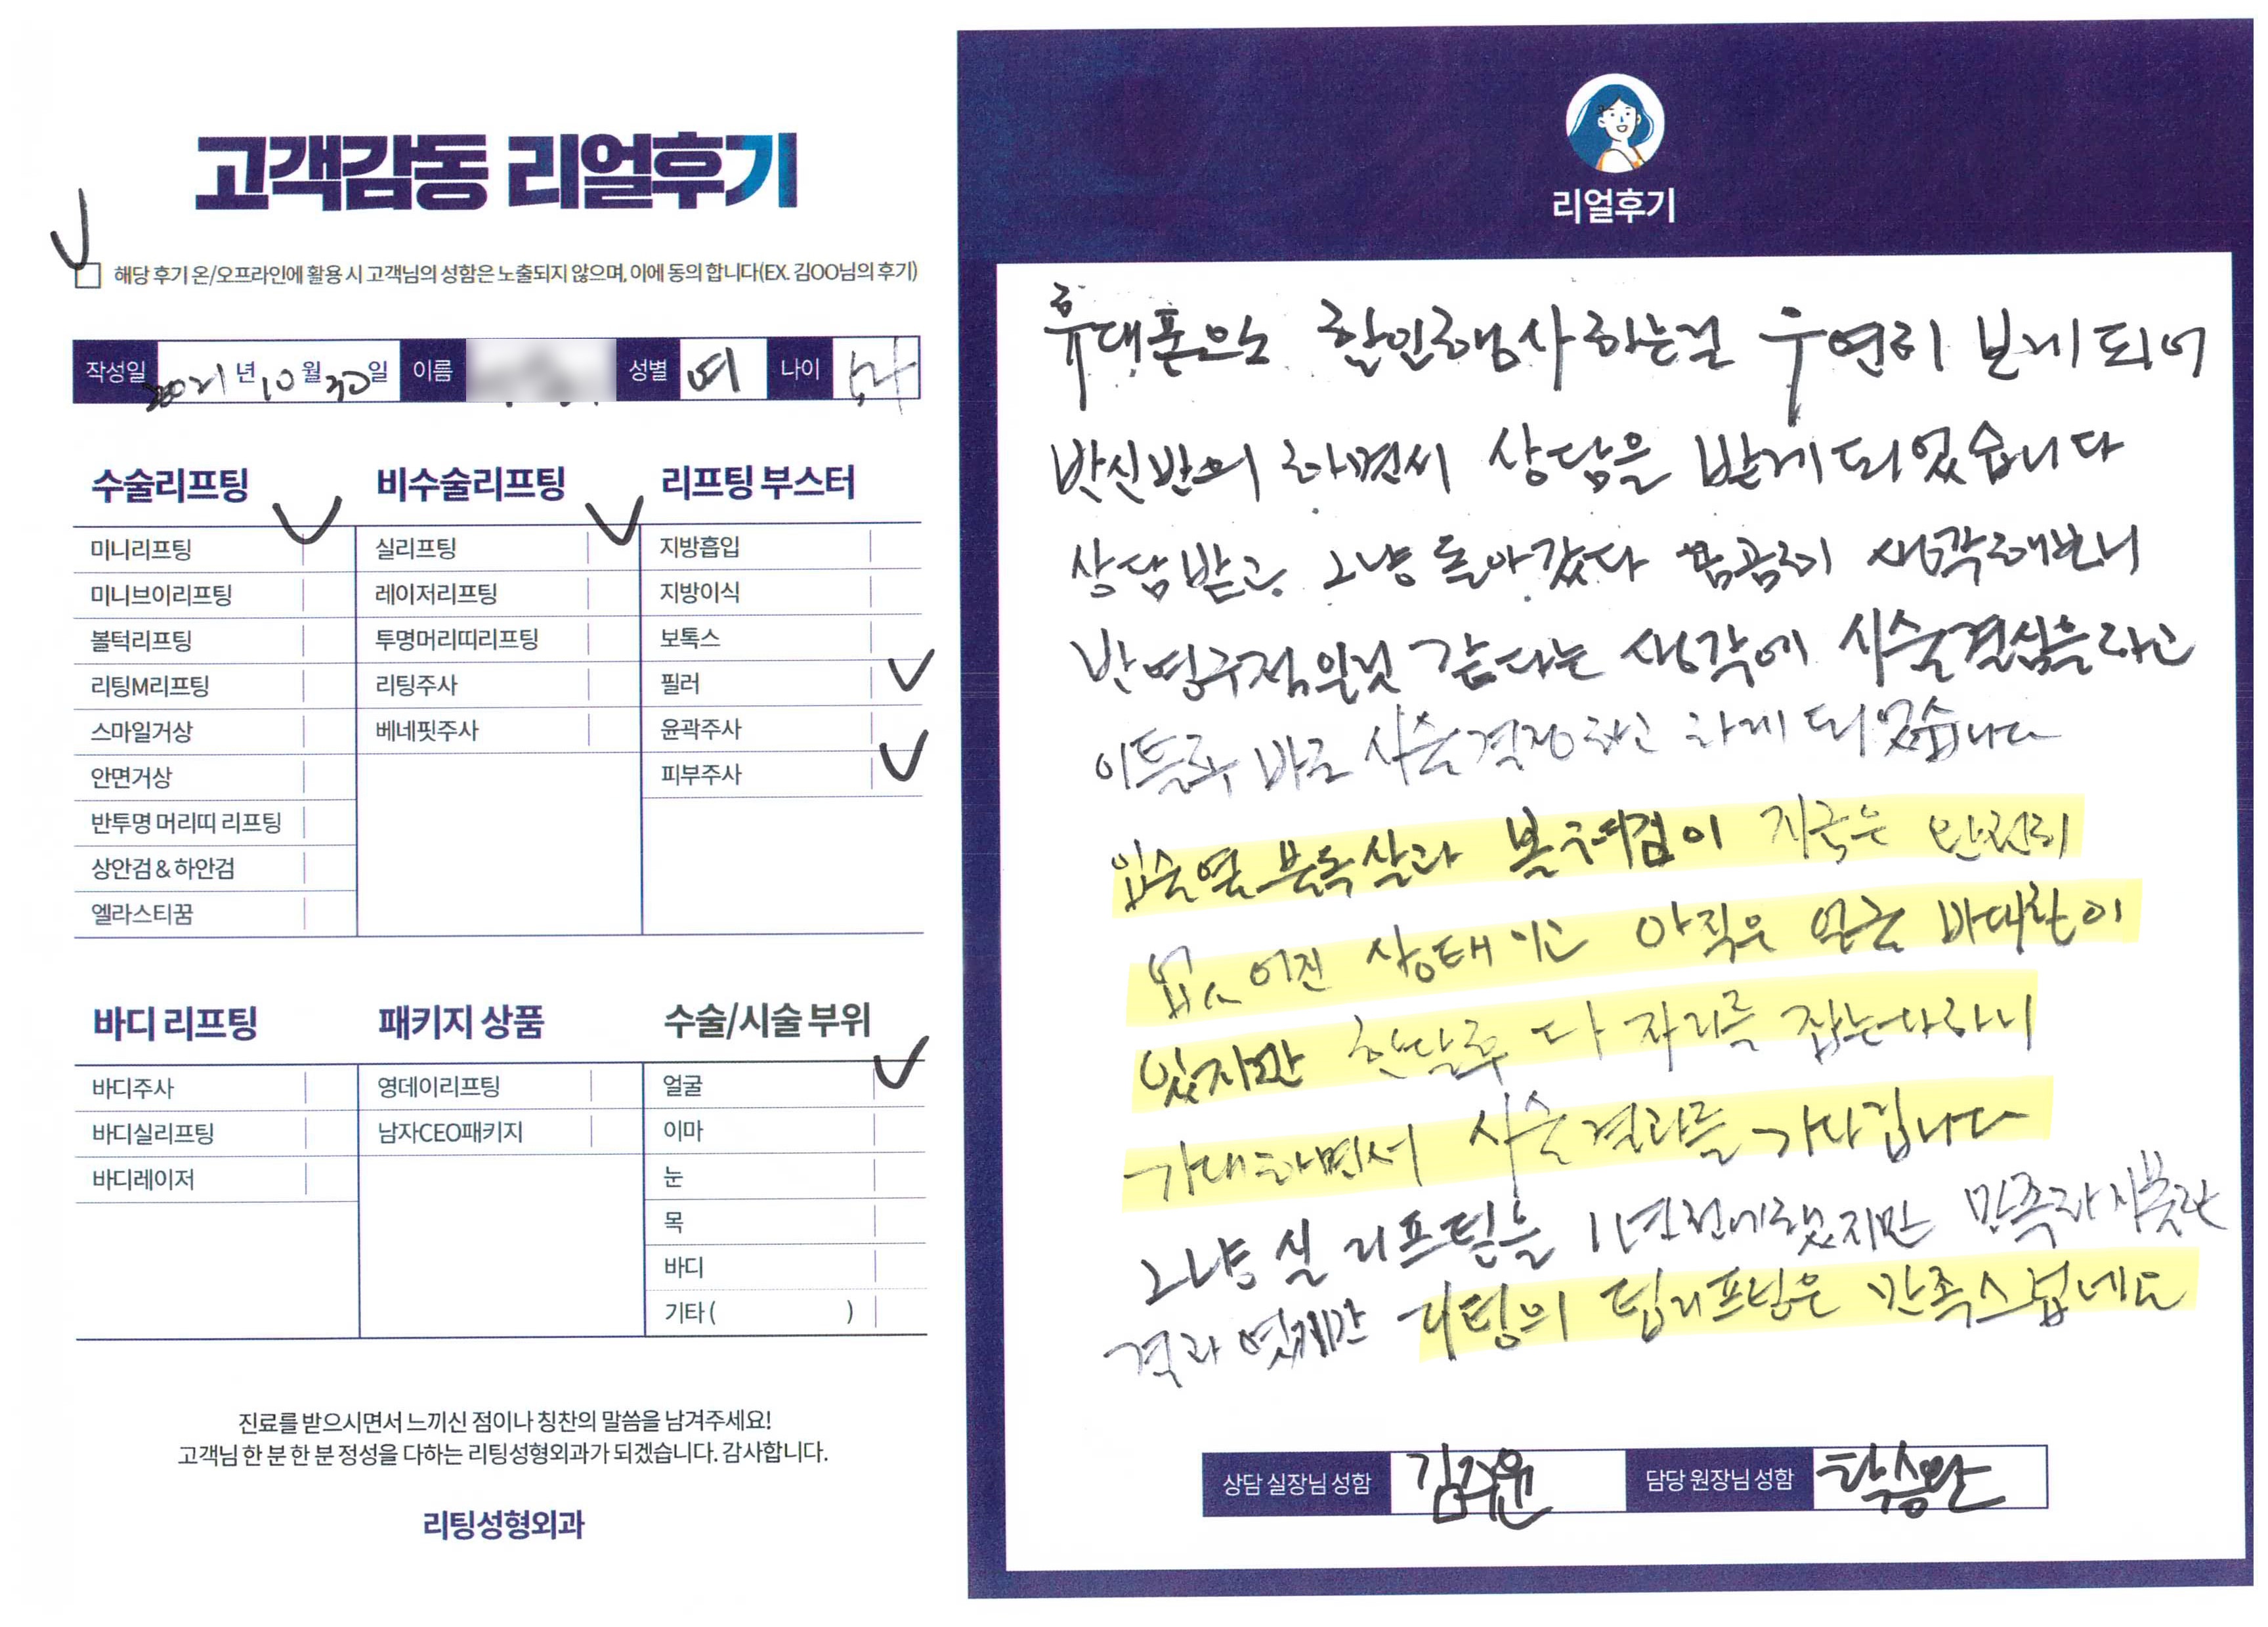 고객감동 리얼후기
해당 후기 온/오프라인에 활용 시 고객님의 성함은 노출되지 않으며, 이에 동의 합니다(EX. 김OO님의 후기)
작성일 2021 년 10 월 30 일 이름 성별 여 나이
수술리프팅
미니리프팅
미니브이리프팅
볼턱리프팅
리팅M리프팅
스마일거상
안면거상
반투명 머리띠 리프팅
상안검 & 하안검
엘라스티꿈
비수술리프팅
실리프팅
레이저리프팅
투명머리띠리프팅
리팅주사
베네핏주사
리프팅 부스터
지방흡입
지방이식
보톡스
필러
윤곽주사
피부주사
바디 리프팅
바디주사
바디실리프팅
바디레이저
패키지 상품
영데이리프팅
남자CEO패키지
수술/시술 부위
얼굴
이마
눈
목
바디
기타 ( )
진료를 받으시면서 느끼신 점이나 칭찬의 말씀을 남겨주세요!
고객님 한 분 한 분 정성을 다하는 리팅성형외과가 되겠습니다. 감사합니다.
리팅성형외과
리얼후기
휴대폰으로 할인행사 하는걸 우연히 보게 되어
반신반의 하면서 상담을 받게 되었습니다
상담받고 그냥 돌아갔다 곰곰히 생각해보니
반영구적일것 같다는 생각에 시술결심을하고
이틀후 바로 시술결정하고 하게 되었습니다
입술옆 불독살과 볼 이 지금은 완전히
없어진 상태이고 아직은 얼굴 이
있지만 한달후 다 자리를 잡는다하니
기대하면서 시술결과를 기다립니다
그냥 실 리프팅을 11년전에했지만 만족하지못한
결과 였지만 리팅의 리프팅은 만족스럽네요
상담 실장님 성함 김주윤 담당 원장님 성함 탁승완